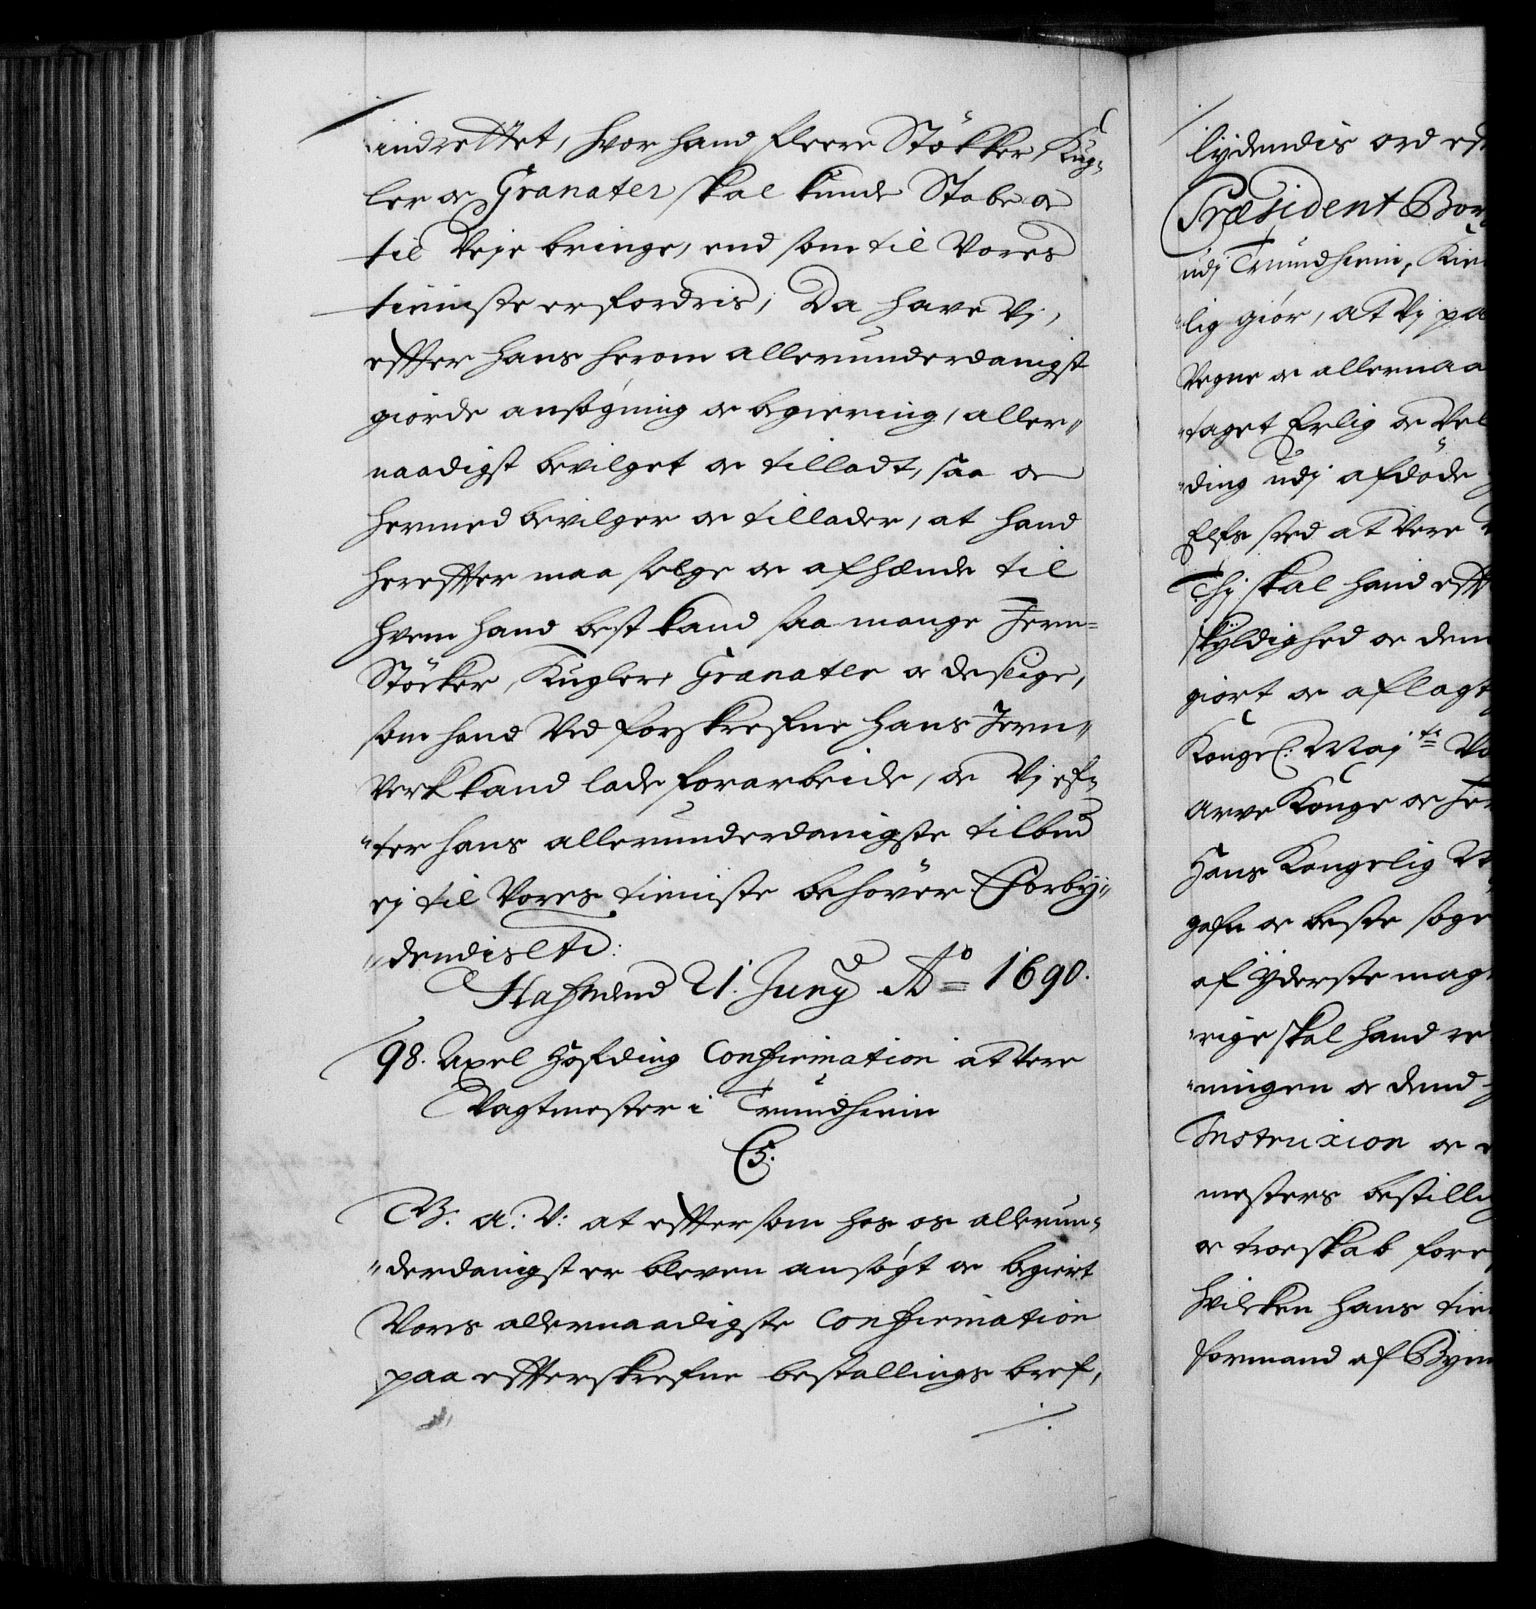 indrettet, hvor hand fleere Støkker, Kug-
ler oc Granater skal kunde Støbe oc
til Veje bringe, end som til Vores
tieniste erfordris, Da have Vj,
effter hans herom allerunderdanigst
giorde ansøgning oc begiering, aller-
naadigst bevilget oc tilladt, saa oc
hermed bevilger oc tillader, at hand
hereffter maa selge oc afhænde til
hvem hand best kand saa mange Jern-
Stöcker, Kugler, Granater oc deslige,
som hand Ved forskrefne hans Jern-
Verk kand lade forarbeide, oc Vj ef-
ter hans allerunderdanigste tilbud
ej til Vores tieniste behöver. Forby-
dendis etc:
Hafniæ d 21. Junij Ao 1690.
98. Axel Höfding Confirmation at vere
Vagtmester i Trundhiem
C5.
G. A: V: at effter som hos os allerun-
derdanigst er bleven ansøgt oc begiert
Vores allernaadigste Confirmation
paa effterskrefne bestallings bref,
lydendis ord eft
Præsident Bor
udj Trundhiem, Kien
lig giör, at Vj pa
Vegne oc allernaa
taget Erlig oc Vel
ding udj afdöde
Elfs sted at Vere
Thj skal hand eff
skyldighed oc dem
giort oc aflagt
Kongel: Maj.ts Vo
Arve Konge oc Her
Hans Kongelig M
gafn oc beste söge
af Yderste mag
rige skal hand re
ningen oc dend
Instruxion oc
mesters bestilli
oc troeskab fore
hvilken hans tie
formand af Bÿen